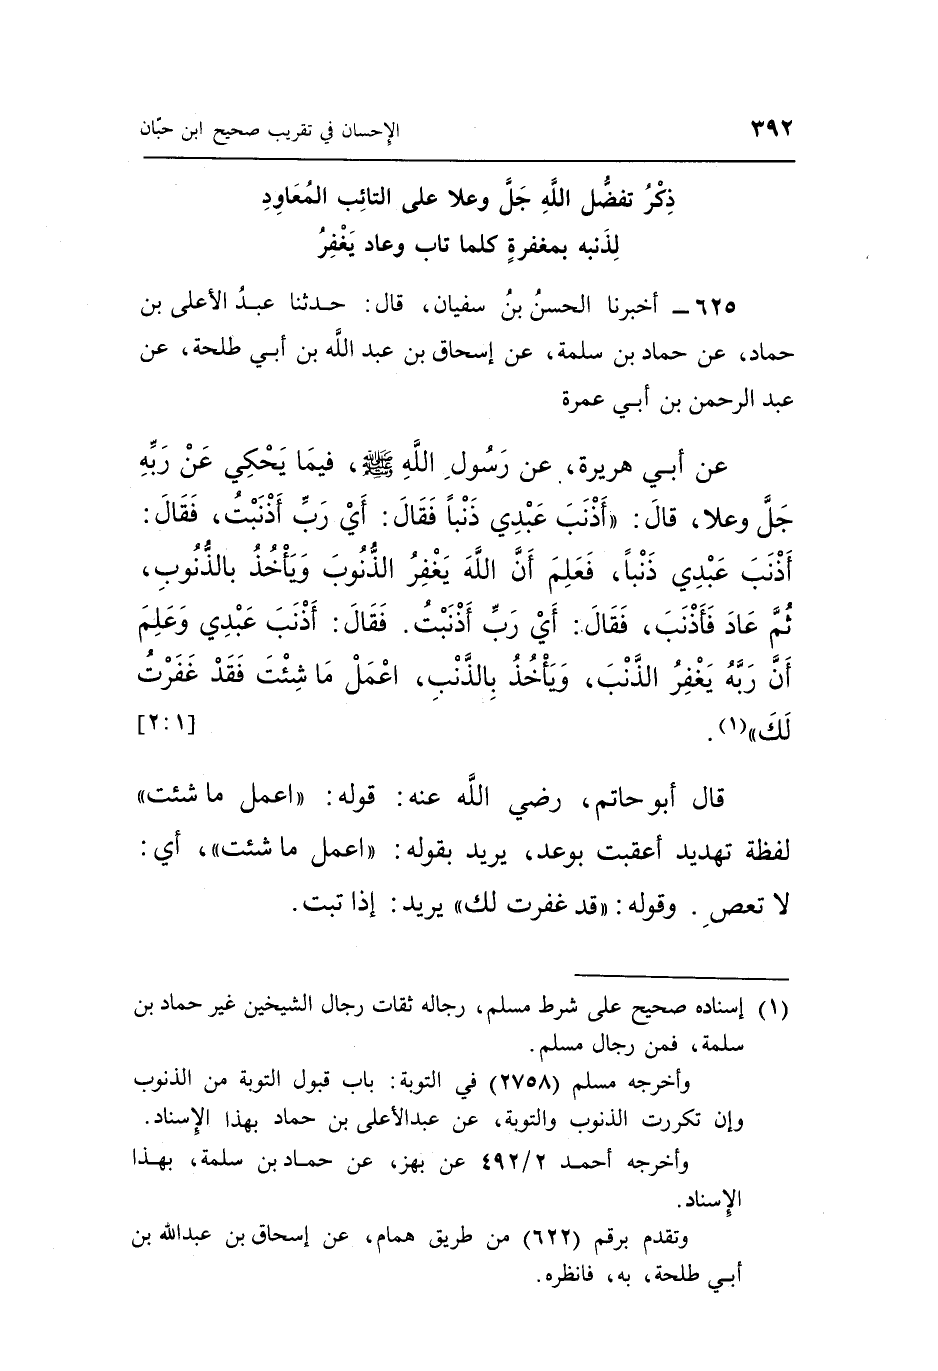 ٣٩٢ الإحسان في تقريب صحيح ابن حبّان
ذِكْرُ تفضُّل اللَّهِ جَلَّ وعلا على التائِب المُعَاوِدِ
لِذَنبه بمغفرةٍ كلما تاب وعاد يَغْفِرُ
٦٢٥ ـ أخبرنا الحسنُ بنُ سفيان، قال: حدثنا عبدُ الأعلى بن
حماد، عن حماد بن سلمة، عن إسحاق بن عبد الله بن أبي طلحة، عن
عبد الرحمن بن أبي عمرة
عن أبي هريرة، عن رَسُولِ اللَّهِ ﷺ، فيمَا يَحْكِي عَنْ رَبِّهِ
جَلَّ وعلا، قالَ: «أَذْنَبَ عَبْدِي ذَنْباً فَقَالَ: أَيْ رَبِّ أَذْنَبْتُ، فَقَالَ:
أَذْنَبَ عَبْدِي ذَنْباً، فَعَلِمَ أَنَّ اللَّهَ يَغْفِرُ الذُّنُوبَ وَيَأْخُذُ بالذُّنُوبِ،
ثُمَّ عَادَ فَأَذْنَبَ، فَقَالَ: أَيْ رَبِّ أَذْنَبْتُ. فَقَالَ: أَذْنَبَ عَبْدِي وَعَلِمَ
أَنَّ رَبَّهُ يَغْفِرُ الذَّنْبَ، وَيَأْخُذُ بِالذَّنْبِ، اعْمَلْ مَا شِئْتَ فَقَدْ غَفَرْتُ
لَكَ»(١). [٢:١]
قال أبو حاتم، رضي اللَّه عنه: قوله: «اعمل ما شئت»
لفظة تهديد أعقبت بوعد، يريد بقوله: «اعمل ما شئت»، أي:
لا تعصِ. وقوله: «قد غفرت لك» يريد: إذا تبت.
(١) إسناده صحيح على شرط مسلم، رجاله ثقات رجال الشيخين غير حماد بن
سلمة، فمن رجال مسلم.
وأخرجه مسلم (٢٧٥٨) في التوبة: باب قبول التوبة من الذنوب
وإن تكررت الذنوب والتوبة، عن عبدالأعلى بن حماد بهذا الإسناد.
وأخرجه أحمد ٤٩٢/٢ عن بهز، عن حماد بن سلمة، بهذا
الإسناد.
وتقدم برقم (٦٢٢) من طريق همام، عن إسحاق بن عبدالله بن
أبي طلحة، به، فانظره.